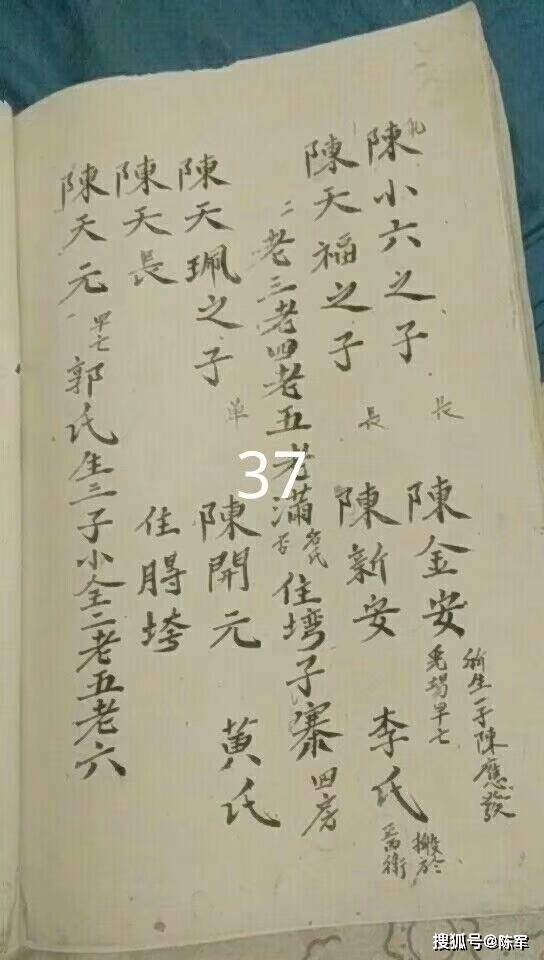 陳小六之子 長 陳金安
所生一子陳應發
早亡
陳天福之子 長 陳新安 李氏
搬於
二老三老四老五老滿 住塆子寨 四房
陳天珮之子 单 陳開元 黄氏
陳天長 住腭垮
陳天元 早亡 郭氏生三子小全二老五老六
37
搜狐号@陈军